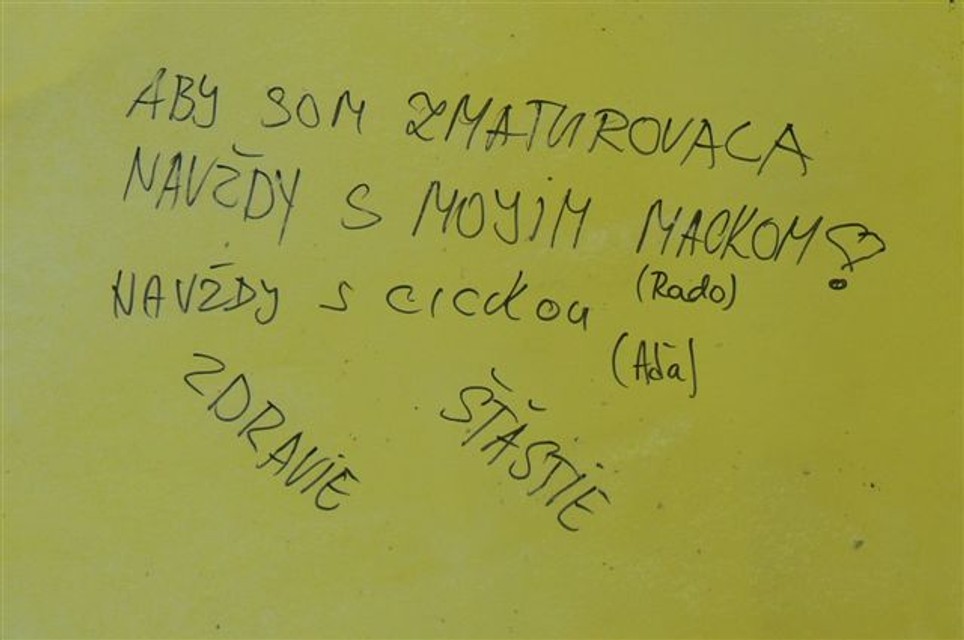 ABY SOM ZMATUROVALA
NAVŽDY S MOYIM MACKOM
NAVŽDY S CICKOU (Rado)
(Aďa)
ZDRAVIE ŠŤASTIE